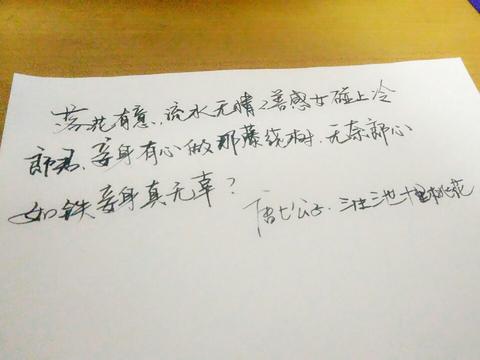 落花有意、流水无情、善感女碰上冷
郎君、妾身有心做那藤绕树、无奈郎心
如铁妾身真无辜？
唐七公子、三生三世十里桃花